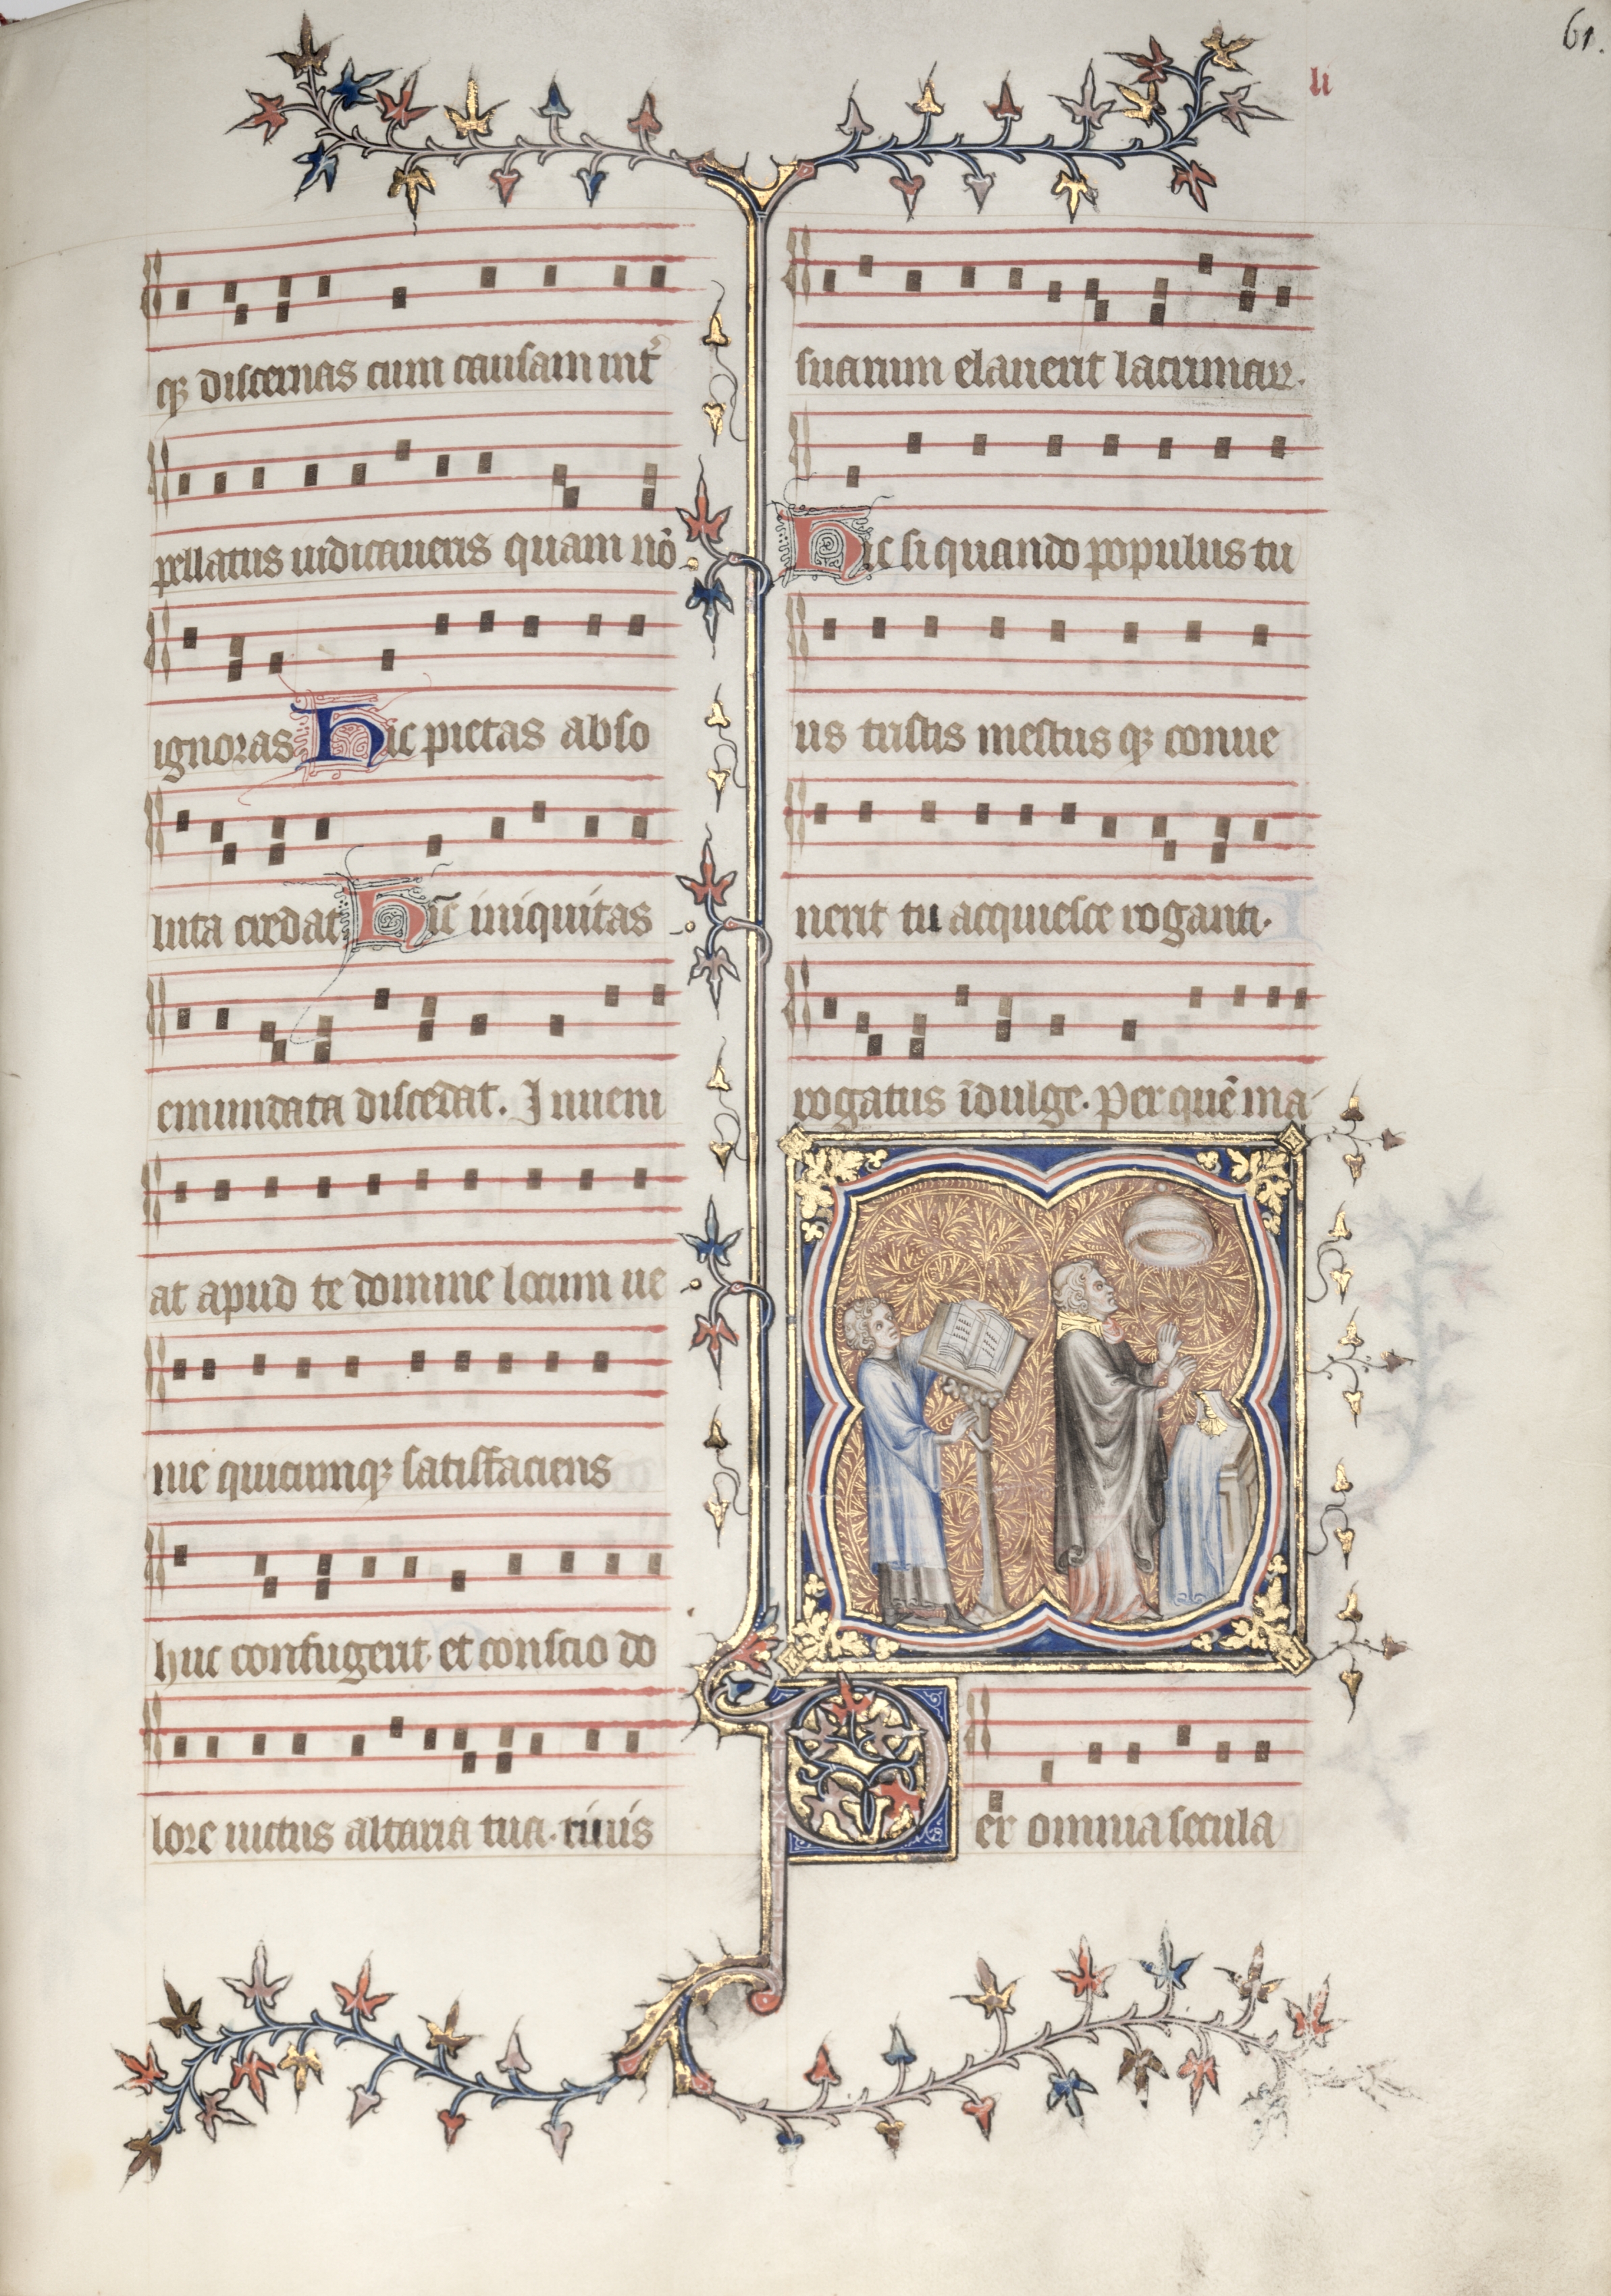 61.
li
qꝫ discernas cum causam int᷑
pellatus iudicaueris quam nō
ignoras Hic pietas abso
luta credat Hīc iniquitas
emundata discedat. Inueni
at apud te domine locum ue
nie quicumqꝫ satisfaciens
huc confugerit. et conscio do
lore uictus altaria tua. riuis
suarum elauerit lacrimaꝝ.
Hic si quando populus tu
us tristis mestus qꝫ conue
nerit tu acquiesce roganti.
rogatus īdulge. Per quē ma
Per omnia secula